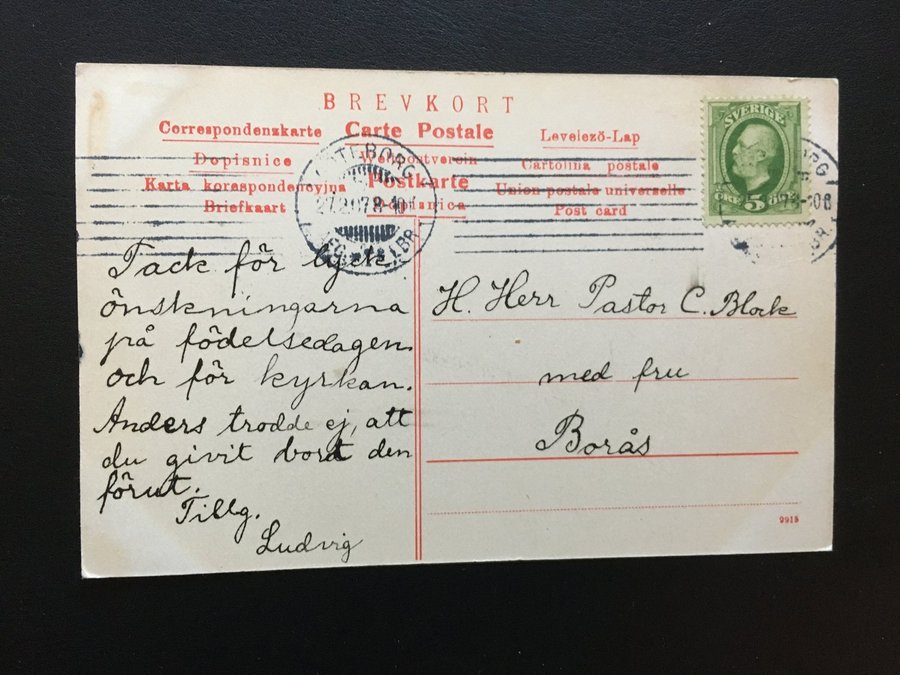 BREVKORT
Correspondenzkarte Carte Postale Levelező-Lap
Dopisnice Weltpostverein Cartolina postale
Karta korespondencyjna Postkarte Union postale universelle
Briefkaart Dopisnica Post card
SVERIGE
ÖRE 5 ÖRE
GÖTEBORG
27.2.07.8-10
LBR
Tack för lyck
önskningarna
på födelsedagen
och för kyrkan.
Anders trodde ej, att
du givit bort den
förut.
Tillg.
Ludvig
H. Herr Pastor C. Block
med fru
Borås
9915